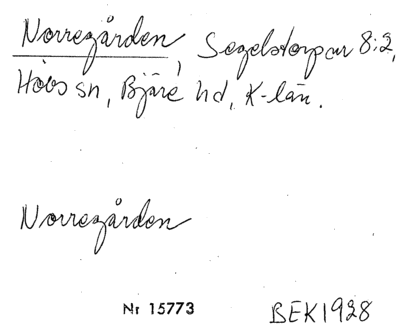 Norregården, Segelstorpar 8:2,
Hovs sn, Bjäre hd, K-län.
Norregården
Nr 15773 BEK 1928